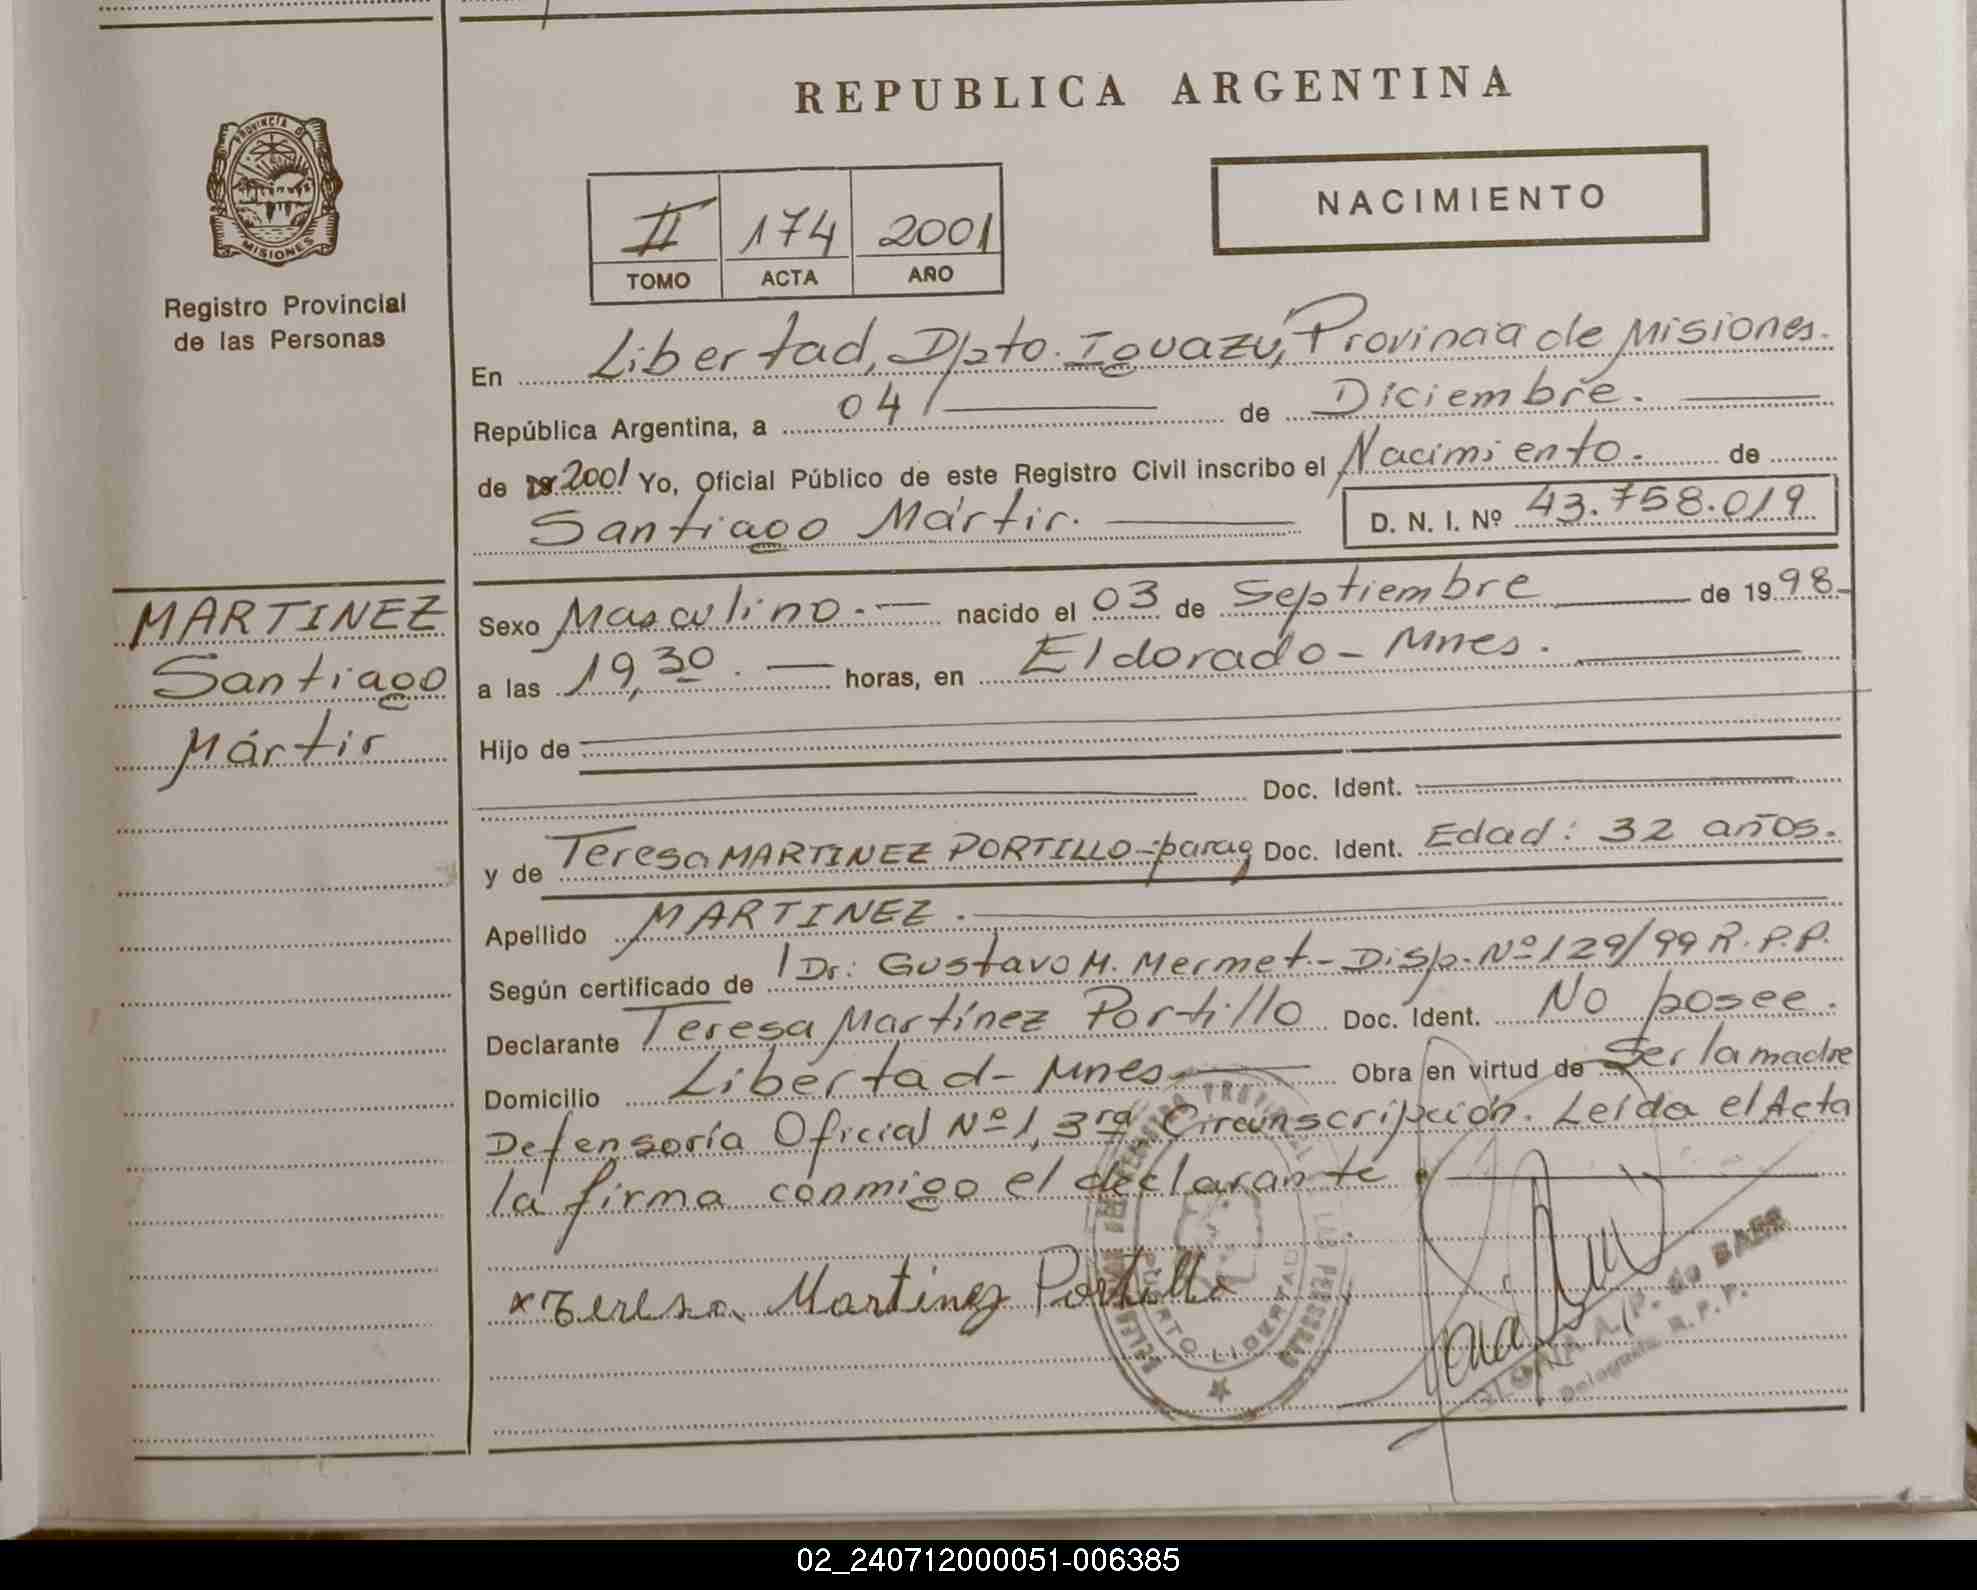 REPUBLICA ARGENTINA
PROVINCIA D
MISIONES
Registro Provincial
de las Personas
II 174 2001
TOMO ACTA AÑO
NACIMIENTO
En Libertad, Dpto. Iguazú, Provincia de Misiones.
República Argentina, a 04 de Diciembre.
de 2001 Yo, Oficial Público de este Registro Civil inscribo el Nacimiento. de
Santiago Mártir. D. N. I. Nº 43.758.019
MARTINEZ
Santiago
Mártir
Sexo Masculino. nacido el 03 de Septiembre de 1998.
a las 19,30. horas, en Eldorado - Mnes.
Hijo de
Doc. Ident.
y de Teresa MARTINEZ PORTILLO - parag Doc. Ident. Edad: 32 años.
Apellido MARTINEZ.
Según certificado de Dr: Gustavo H. Mermet - Disp. Nº 129/99 R.P.P.
Declarante Teresa Martínez Portillo Doc. Ident. No posee.
Domicilio Libertad - Mnes Obra en virtud de Ser la madre
Defensoría Oficial Nº 1, 3ra Circunscripción. Leída el Acta
la firma conmigo el declarante.
x Teresa Martinez Portillo
PUERTO LIBERTAD
A. P. de BAEZ
Delegada R. P. P.
02_240712000051-006385